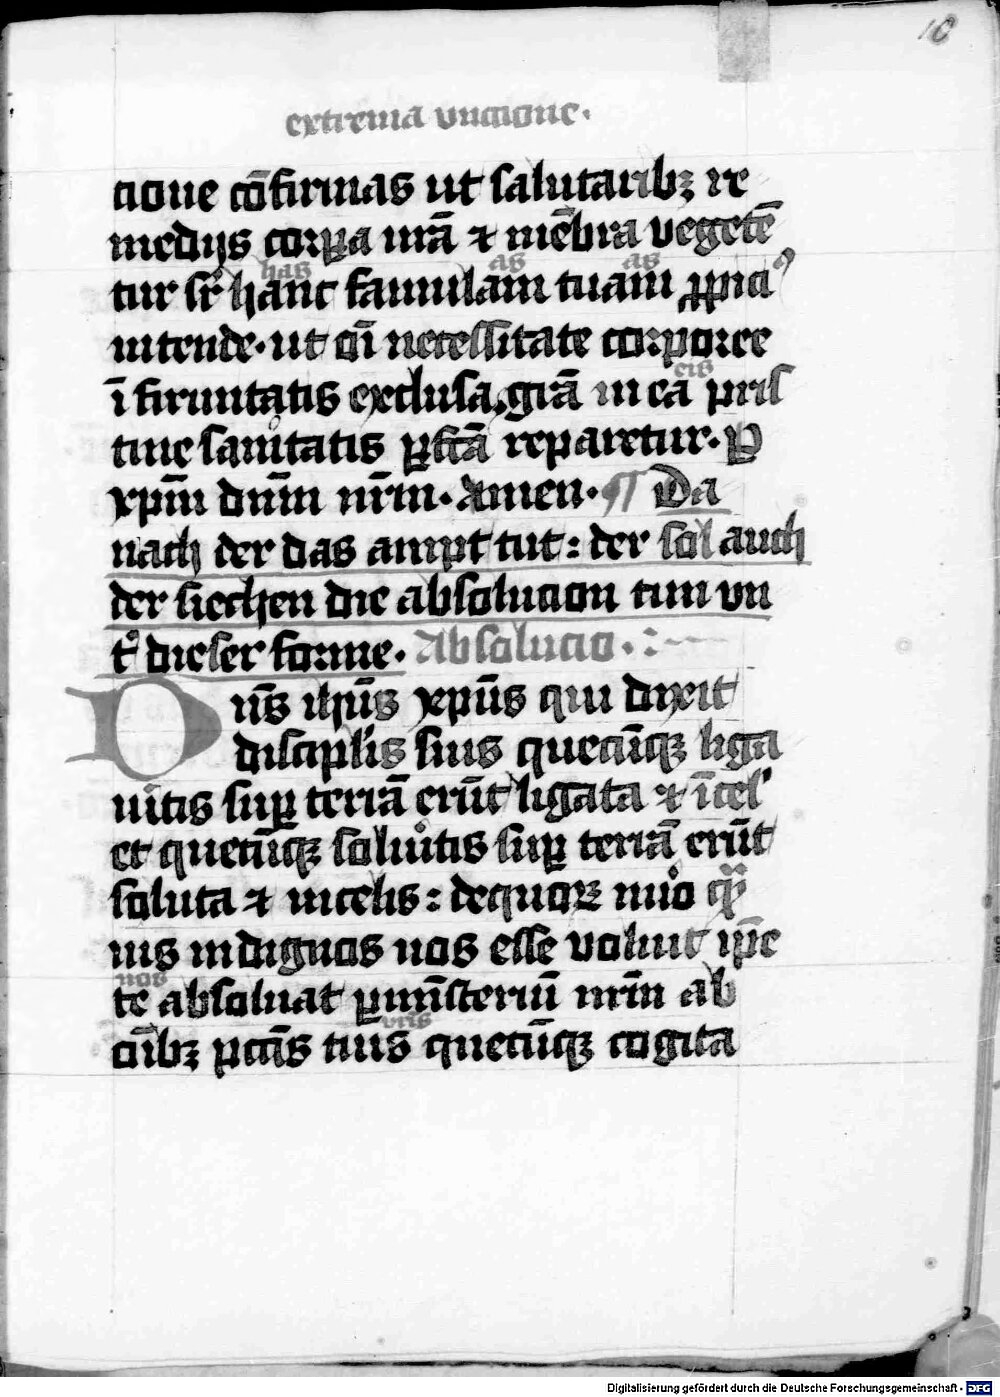 10
extrema unctione.
cione cōfirmas ut salutaribꝫ re
medijs corꝑa nr̄a ⁊ mēbra vegetē
has as as
tur sr̄ hanc famulam tuam ꝓpici᷒
intende· ut oī necessitate corporee
eis
ī firmitatis exclusa gr̄a in ea pris
tine sanitatis ꝑfc̄a reparetur· ꝑ
xpm̄ dnm̄ nrm̄· Amen· ¶ Da
nach der das ampt tut : der sol auch
der siechen die absolucion tun vn
t᷎ dieser forme· Absolucio·
Dn̄s ihūs xpūs qui dixit
discipl̄is suis quecūqꝫ liga
uitis suꝑ terrā erūt ligata ⁊ ī cel᷎
et quecūqꝫ soluitis suꝑ terrā erūt
soluta ⁊ in celis : de quoꝝ nūo qᷓ
uis indignos nos esse voluit ip̄e
nos
te absoluat ꝑ minst̄eriū nrm̄ ab
vr̄is
oībꝫ pctīs tuis quecūqꝫ cogita
Digitalisierung gefördert durch die Deutsche Forschungsgemeinschaft - DFG